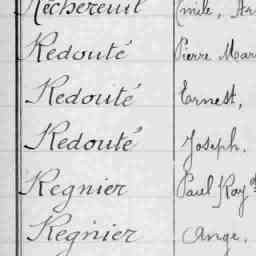 Réchereuil Émile, Ar
Redouté Pierre Mar
Redouté Ernest,
Redouté Joseph.
Regnier Paul Roy
Regnier Ange.